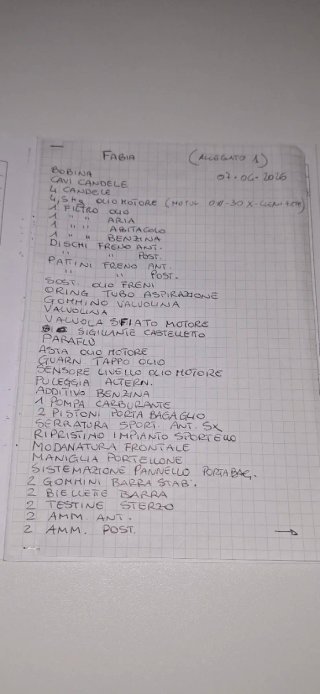 FABIA (ALLEGATO 1)
07-04-2026
BOBINA
CAVI CANDELE
4 CANDELE
4,5 Kg OLIO MOTORE (MOTUL 0W-30 X-CLEAN
1 FILTRO OLIO
1 " " ARIA
1 " " ABITACOLO
1 " " BENZINA
DISCHI FRENO ANT.
" " POST.
PATTINI FRENO ANT.
" " POST.
SOST. OLIO FRENI
ORING TUBO ASPIRAZIONE
GOMMINO VALVOLINA
VALVOLINA
VALVOLA SFIATO MOTORE
SIGILLANTE CASTELLETTO
PARAFLU
ASTA OLIO MOTORE
GUARN TAPPO OLIO
SENSORE LIVELLO OLIO MOTORE
PULEGGIA ALTERN.
ADDITIVO BENZINA
1 POMPA CARBURANTE
2 PISTONI PORTA BAGAGLIO
SERRATURA SPORT. ANT. SX
RIPRISTINO IMPIANTO SPORTELLO
MODANATURA FRONTALE
MANIGLIA PORTELLONE
SISTEMAZIONE PANNELLO PORTABAG.
2 GOMMINI BARRA STAB.
2 BIELLETE BARRA
2 TESTINE STERZO
2 AMM ANT.
2 AMM. POST. →